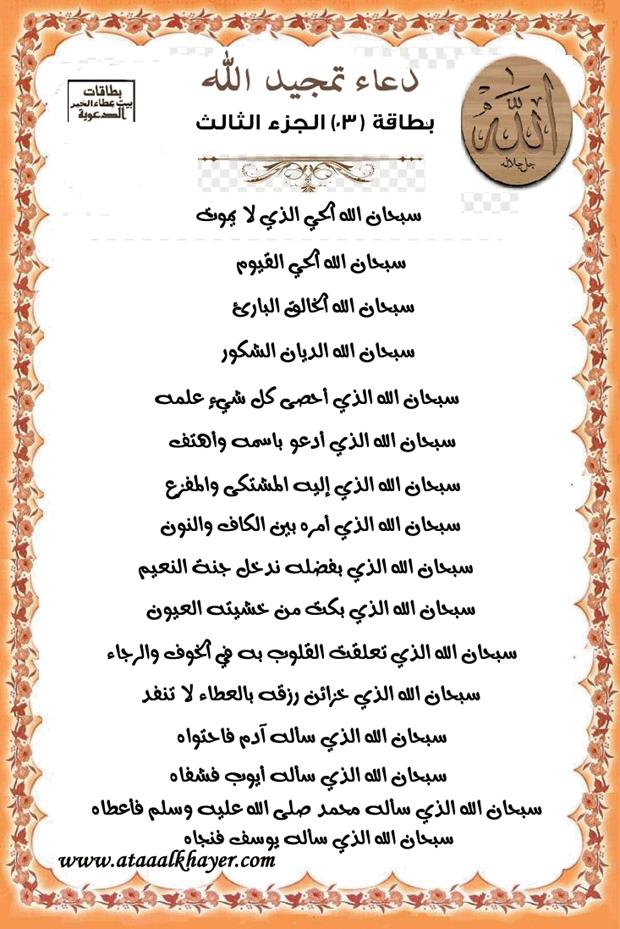 دعاء تمجيد الله
بطاقة (٠٣) الجزء الثالث
بطاقات
بيت عطاء الخير
الدعوية
الله
جل جلاله
سبحان الله الحي الذي لا يموت
سبحان الله الحي القيوم
سبحان الله الخالق البارئ
سبحان الله الديان الشكور
سبحان الله الذي أحصى كل شيء علمه
سبحان الله الذي أدعو باسمه وأهتف
سبحان الله الذي إليه المشتكى والمفزع
سبحان الله الذي أمره بين الكاف والنون
سبحان الله الذي بفضله ندخل جنة النعيم
سبحان الله الذي بكت من خشيته العيون
سبحان الله الذي تعلقت القلوب به في الخوف والرجاء
سبحان الله الذي خزائن رزقه بالعطاء لا تنفد
سبحان الله الذي سأله آدم فاحتواه
سبحان الله الذي سأله أيوب فشفاه
سبحان الله الذي سأله محمد صلى الله عليه وسلم فأعطاه
سبحان الله الذي سأله يوسف فنجاه
www.ataaalkhayer.com